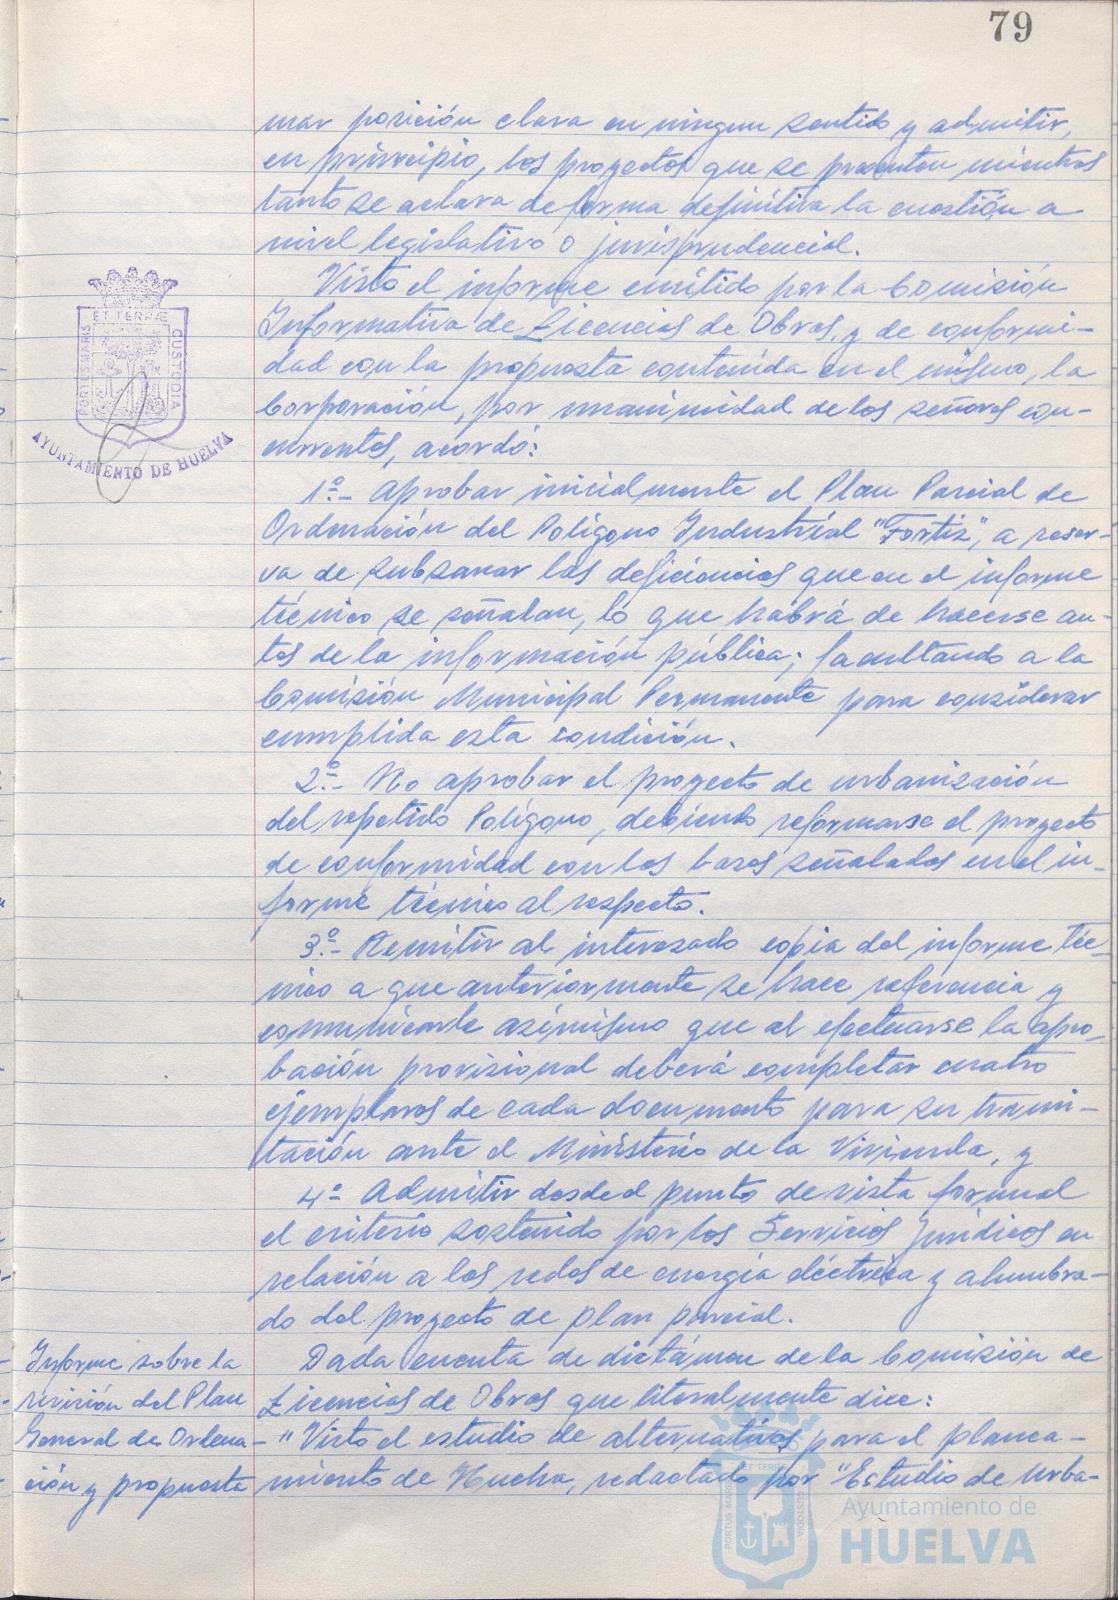 79
mar posición clara en ningun sentido y admitir,
en principio, los proyectos que se presenten mientras
tanto se aclara de forma definitiva la cuestión a
nivel legislativo o jurisprudencial.
Visto el informe emitido por la Comisión
Informativa de Licencias de Obras, y de conformi-
dad con la propuesta contenida en el mismo, la
Corporación, por unanimidad de los señores con-
currentes, acordó:
1º.- Aprobar inicialmente el Plan Parcial de
Ordenación del Polígono Industrial "Fortiz", a reser-
va de subsanar las deficiencias que en el informe
técnico se señalan, lo que habrá de hacerse an-
tes de la información pública; facultando a la
Comisión Municipal Permanente para considerar
cumplida esta condición.
2º.- No aprobar el proyecto de urbanización
del repetido Polígono, debiendo reformarse el proyecto
de conformidad con las bases señaladas en el in-
forme técnico al respecto.
3º.- Remitir al interesado copia del informe téc-
nico a que anteriormente se hace referencia y
comunicarle asimismo que al efectuarse la apro-
bación provisional deberá completar cuatro
ejemplares de cada documento para su trami-
tación ante el Ministerio de la Vivienda, y
4º- Admitir desde el punto de vista formal
el criterio sostenido por los Servicios Jurídicos en
relación a las redes de energía eléctrica y alumbra-
do del proyecto de plan parcial.
Informe sobre la
revisión del Plan
General de Ordena-
ción y propuesta
Dada cuenta de dictámen de la Comisión de
Licencias de Obras que literalmente dice:
"Visto el estudio de alternativas para el planea-
miento de Huelva, redactado por "Estudio de Urba-
PORTUS MARIS
ET TERRE
CUSTODIA
AYUNTAMIENTO DE HUELVA
PORTUS MARIS
ET TERRE
CUSTODIA
Ayuntamiento de
HUELVA